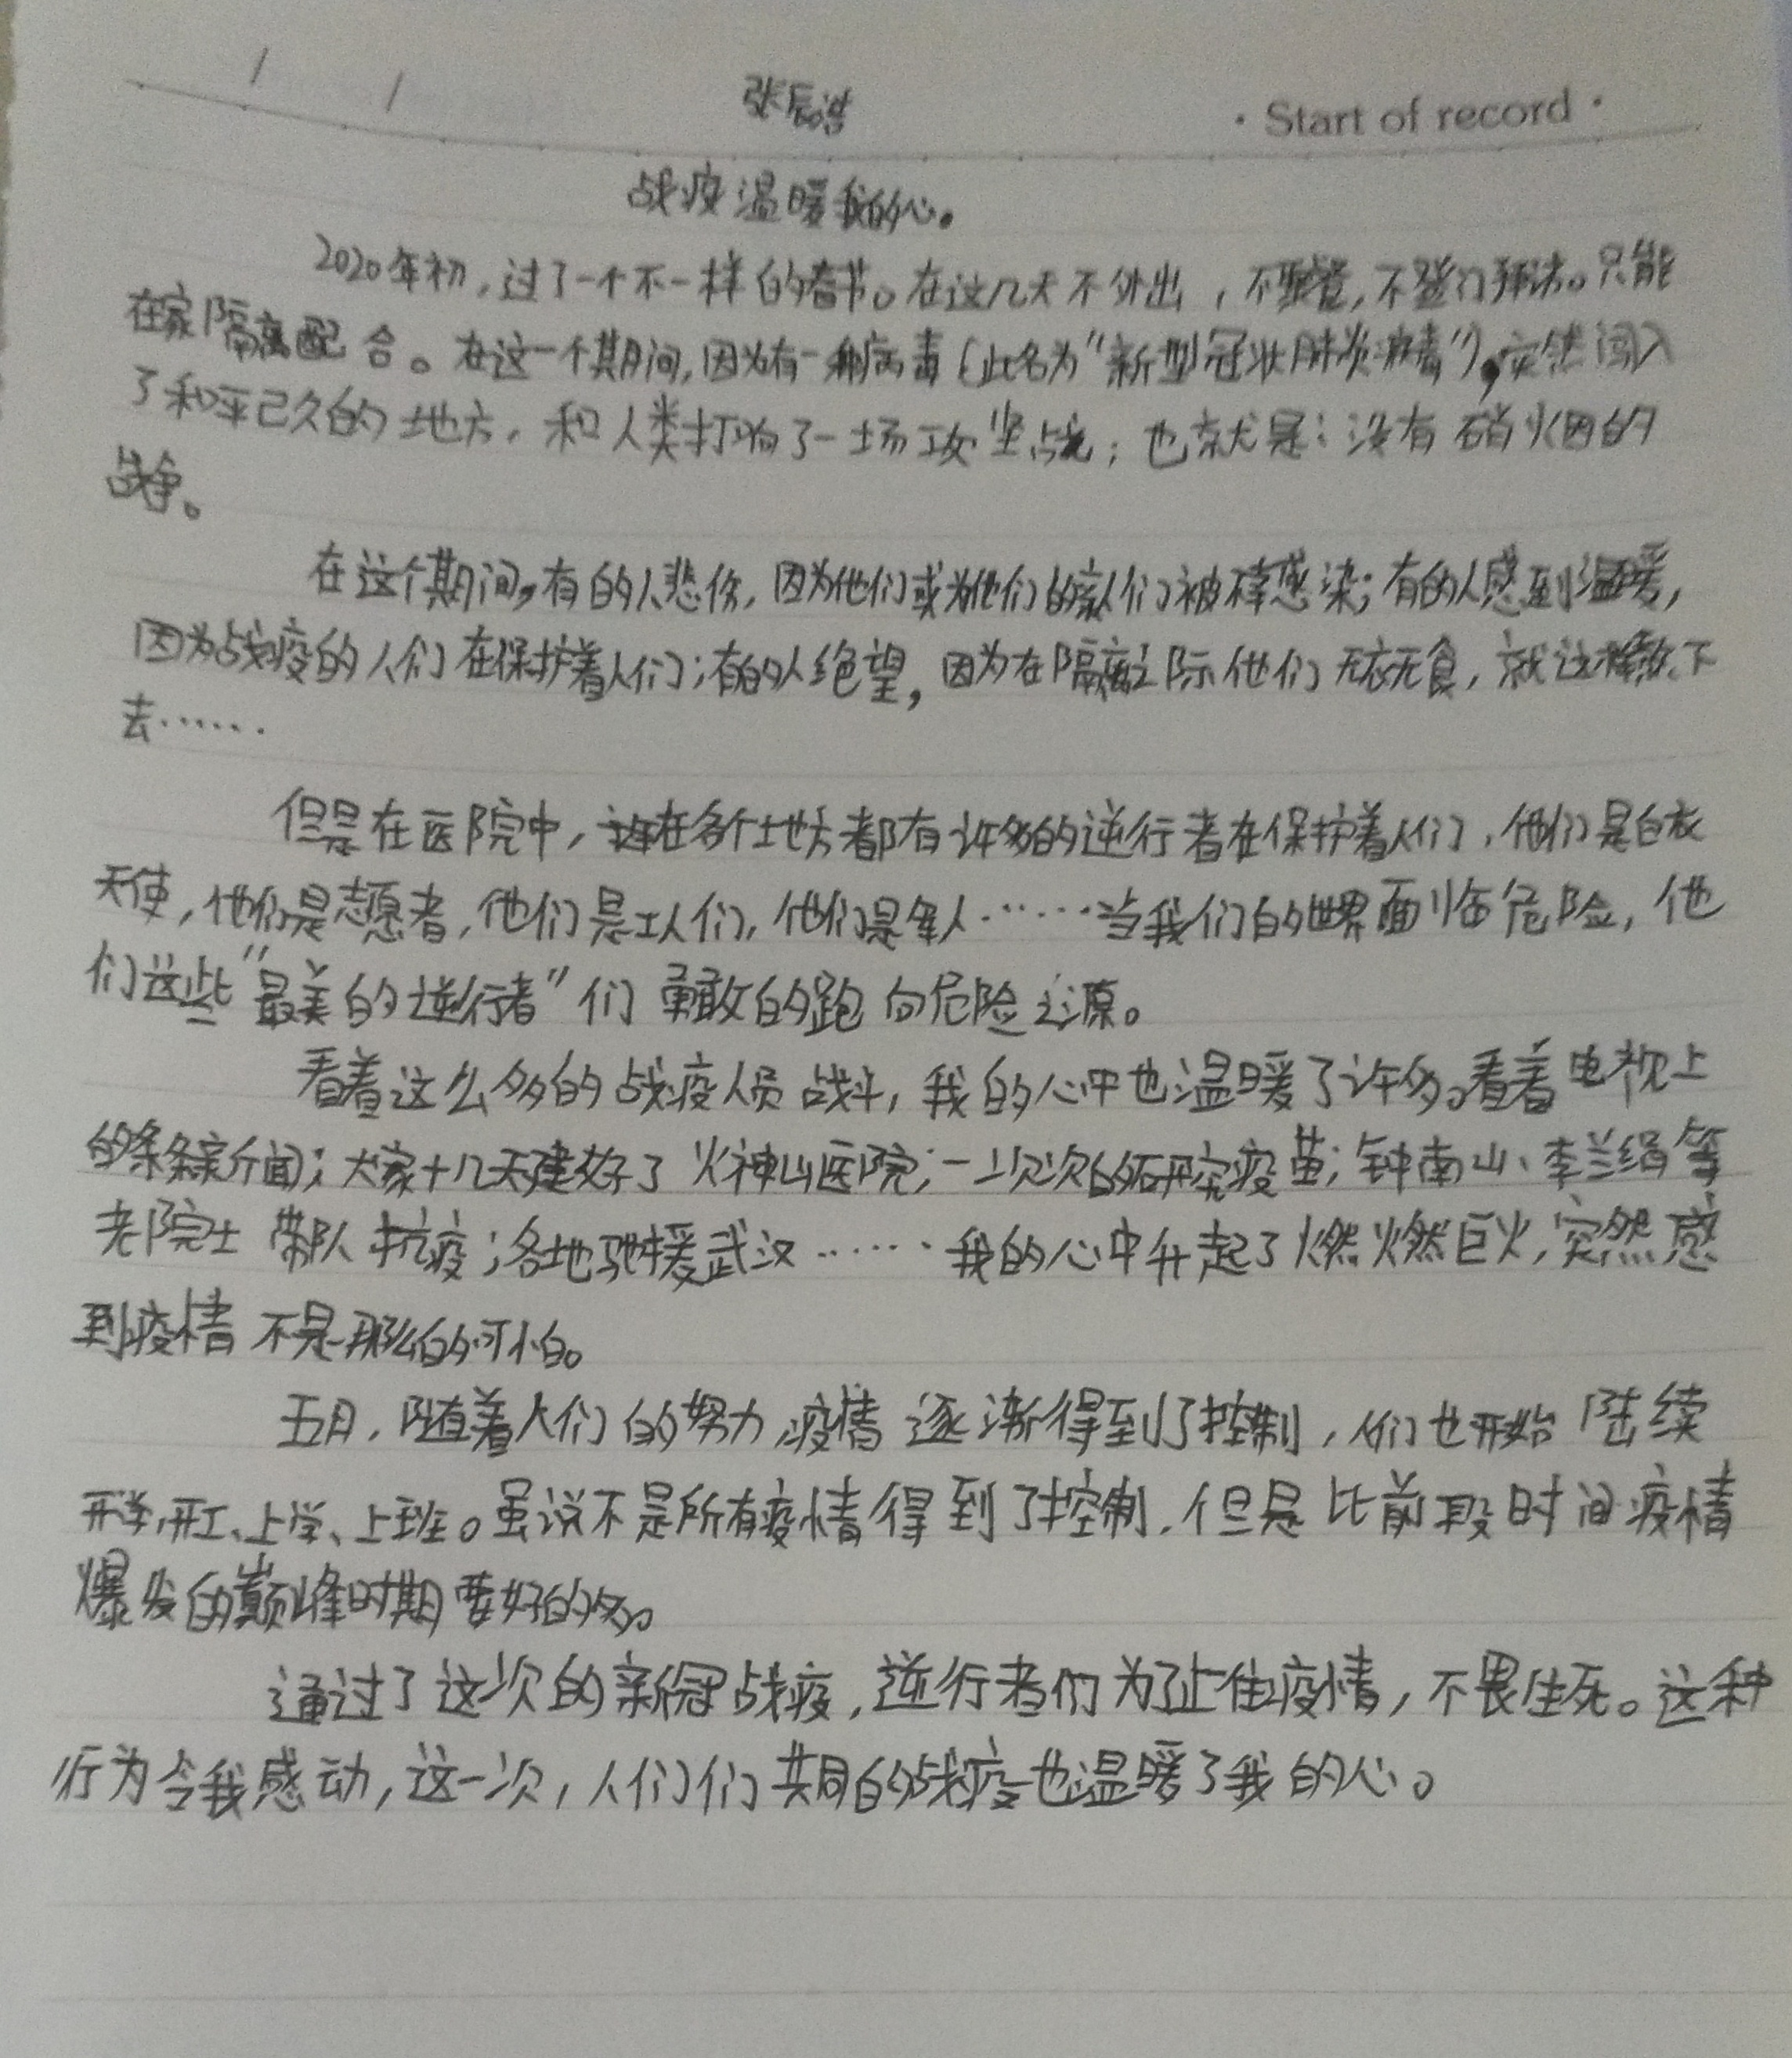 张辰浩
· Start of record ·
战疫温暖我的心。
2020年初,过了一个不一样的春节。在这几天不外出,不聚餐,不登门拜访。只能
在家隔离配合。在这一个期间,因为有一种病毒(此名为"新型冠状肺炎病毒"),突然闯入
了和平已久的地方,和人类打响了一场攻坚战;也就是:没有硝火因的
战争。
在这个期间,有的人悲伤,因为他们或为他们的家人们被感染;有的人感到温暖,
因为战疫的人们在保护着人们;有的人绝望,因为在隔离之际他们无衣无食,就这样下
去……
但是在医院中,在各个地方都有许多的逆行者在保护着人们,他们是白衣
天使,他们是志愿者,他们是工人们,他们是军人……当我们的世界面临危险,他
们这些"最美的逆行者"们勇敢的跑向危险之源。
看着这么多的战疫人员战斗,我的心中也温暖了许多。看着电视上
的条条新闻;大家十几天建好了火神山医院;一次次的研究疫苗;钟南山、李兰绢等
老院士带队抗疫;各地驰援武汉……我的心中升起了燃燃巨火,突然感
到疫情不是那么的可怕。
五月,随着人们的努力,疫情逐渐得到了控制,人们也开始陆续
开学,开工、上学、上班。虽说不是所有疫情得到了控制,但是比前段时间疫情
爆发的巅峰时期要好的多。
通过了这次的新冠战疫,逆行者们为了止住疫情,不畏生死。这种
行为令我感动,这一次,人们们共同的战疫也温暖了我的心。